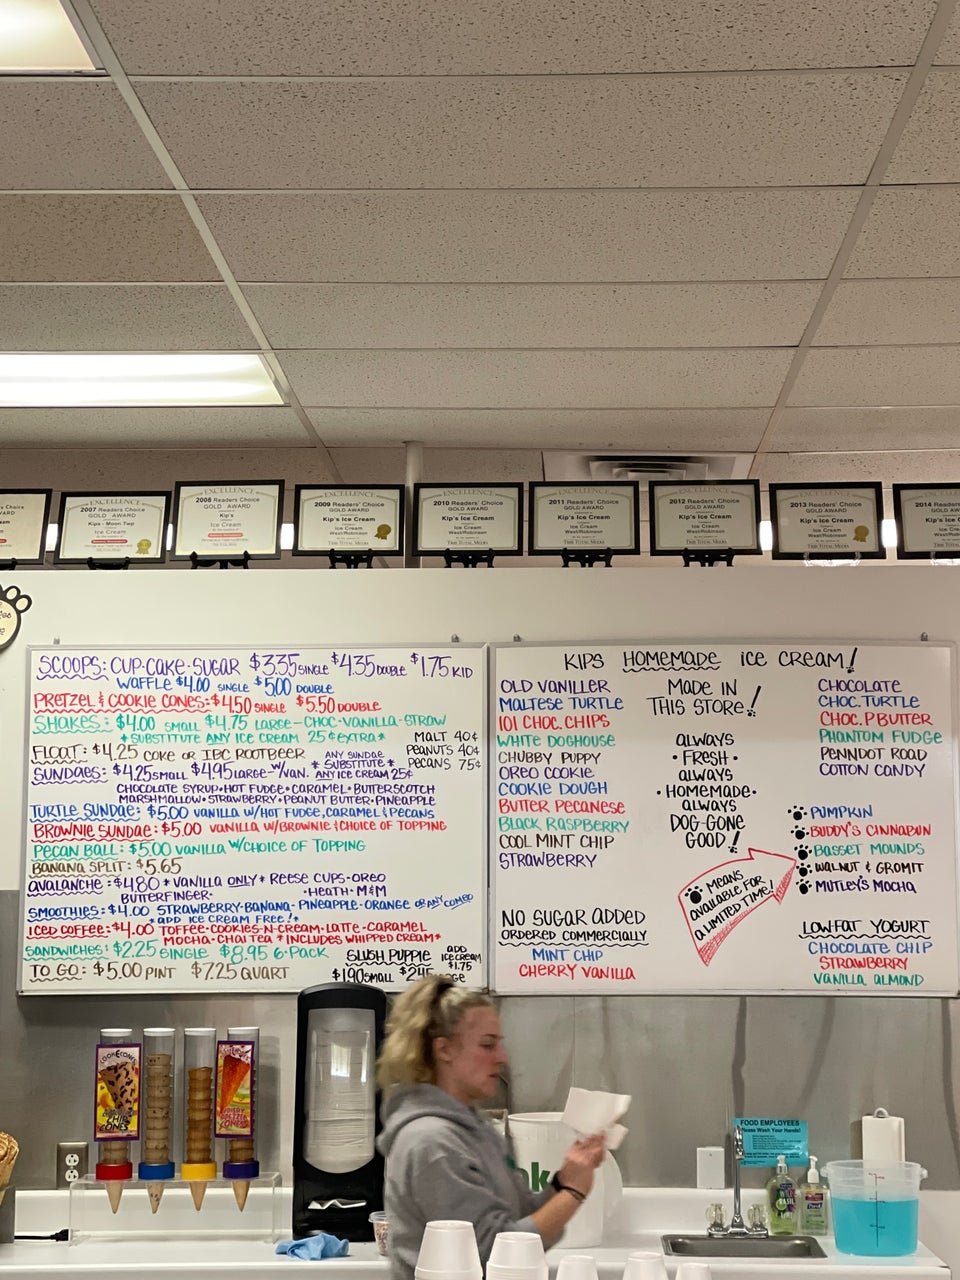 EXCELLENCE
2007 Readers' Choice
GOLD AWARD
Kips - Moon Twp
Ice Cream
EXCELLENCE
2008 Readers' Choice
GOLD AWARD
Kip's
Ice Cream
EXCELLENCE
2009 Readers' Choice
GOLD AWARD
Kip's Ice Cream
Ice Cream
West/Robinson
TRIB TOTAL MEDIA
EXCELLENCE
2010 Readers' Choice
GOLD AWARD
Kip's Ice Cream
Ice Cream
West/Robinson
TRIB TOTAL MEDIA
EXCELLENCE
2011 Readers' Choice
GOLD AWARD
Kip's Ice Cream
Ice Cream
West/Robinson
TRIB TOTAL MEDIA
EXCELLENCE
2012 Readers' Choice
GOLD AWARD
Kip's Ice Cream
Ice Cream
West/Robinson
TRIB TOTAL MEDIA
EXCELLENCE
2013 Readers' Choice
GOLD AWARD
Kip's Ice Cream
Ice Cream
West/Robinson
TRIB TOTAL MEDIA
2014 Readers'
GOLD
Kip's Ice
SCOOPS: CUP·CAKE·SUGAR $3.35 SINGLE $4.35 DOUBLE $1.75 KID
WAFFLE $4.00 SINGLE $5.00 DOUBLE
PRETZEL & COOKIE CONES: $4.50 SINGLE $5.50 DOUBLE
SHAKES: $4.00 SMALL $4.75 LARGE - CHOC-VANILLA-STRAW
* SUBSTITUTE ANY ICE CREAM 25¢ EXTRA *
MALT 40¢
PEANUTS 40¢
PECANS 75¢
FLOAT: $4.25 COKE OR IBC ROOTBEER
ANY SUNDAE
* SUBSTITUTE *
ANY ICE CREAM 25¢
SUNDAES: $4.25 SMALL $4.95 LARGE - W/VAN.
CHOCOLATE SYRUP • HOT FUDGE • CARAMEL • BUTTERSCOTCH
MARSHMALLOW • STRAWBERRY • PEANUT BUTTER • PINEAPPLE
TURTLE SUNDAE: $5.00 VANILLA W/HOT FUDGE, CARAMEL & PECANS
BROWNIE SUNDAE: $5.00 VANILLA W/BROWNIE & CHOICE OF TOPPING
PECAN BALL: $5.00 VANILLA W/CHOICE OF TOPPING
BANANA SPLIT: $5.65
AVALANCHE: $4.80 * VANILLA ONLY * REESE CUPS-OREO
BUTTERFINGER • • HEATH • M&M
SMOOTHIES: $4.00 STRAWBERRY-BANANA- PINEAPPLE-ORANGE OR ANY COMBO
* ADD ICE CREAM FREE! *
ICED COFFEE: $4.00 TOFFEE-COOKIES-N-CREAM-LATTE-CARAMEL
MOCHA-CHAI TEA * INCLUDES WHIPPED CREAM *
SANDWICHES: $2.25 SINGLE $8.95 6-PACK
TO GO: $5.00 PINT $7.25 QUART
SLUSH PUPPIE
$1.90 SMALL $2.45
ADD
ICE CREAM
$1.75
KIPS HOMEMADE ICE CREAM!
OLD VANILLER
MALTESE TURTLE
101 CHOC. CHIPS
WHITE DOGHOUSE
CHUBBY PUPPY
OREO COOKIE
COOKIE DOUGH
BUTTER PECANESE
BLACK RASPBERRY
COOL MINT CHIP
STRAWBERRY
NO SUGAR ADDED
ORDERED COMMERCIALLY
MINT CHIP
CHERRY VANILLA
MADE IN
THIS STORE!
ALWAYS
• FRESH •
ALWAYS
• HOMEMADE •
ALWAYS
DOG-GONE
GOOD!
MEANS
AVAILABLE FOR
A LIMITED TIME!
CHOCOLATE
CHOC. TURTLE
CHOC. P.BUTTER
PHANTOM FUDGE
PENNDOT ROAD
COTTON CANDY
PUMPKIN
BUDDY'S CINNABUN
BASSET MOUNDS
WALNUT & GROMIT
MUTLEY'S MOCHA
LOW-FAT YOGURT
CHOCOLATE CHIP
STRAWBERRY
VANILLA ALMOND
CHIP
CONES
FOOD EMPLOYEES
Please Wash Your Hands!